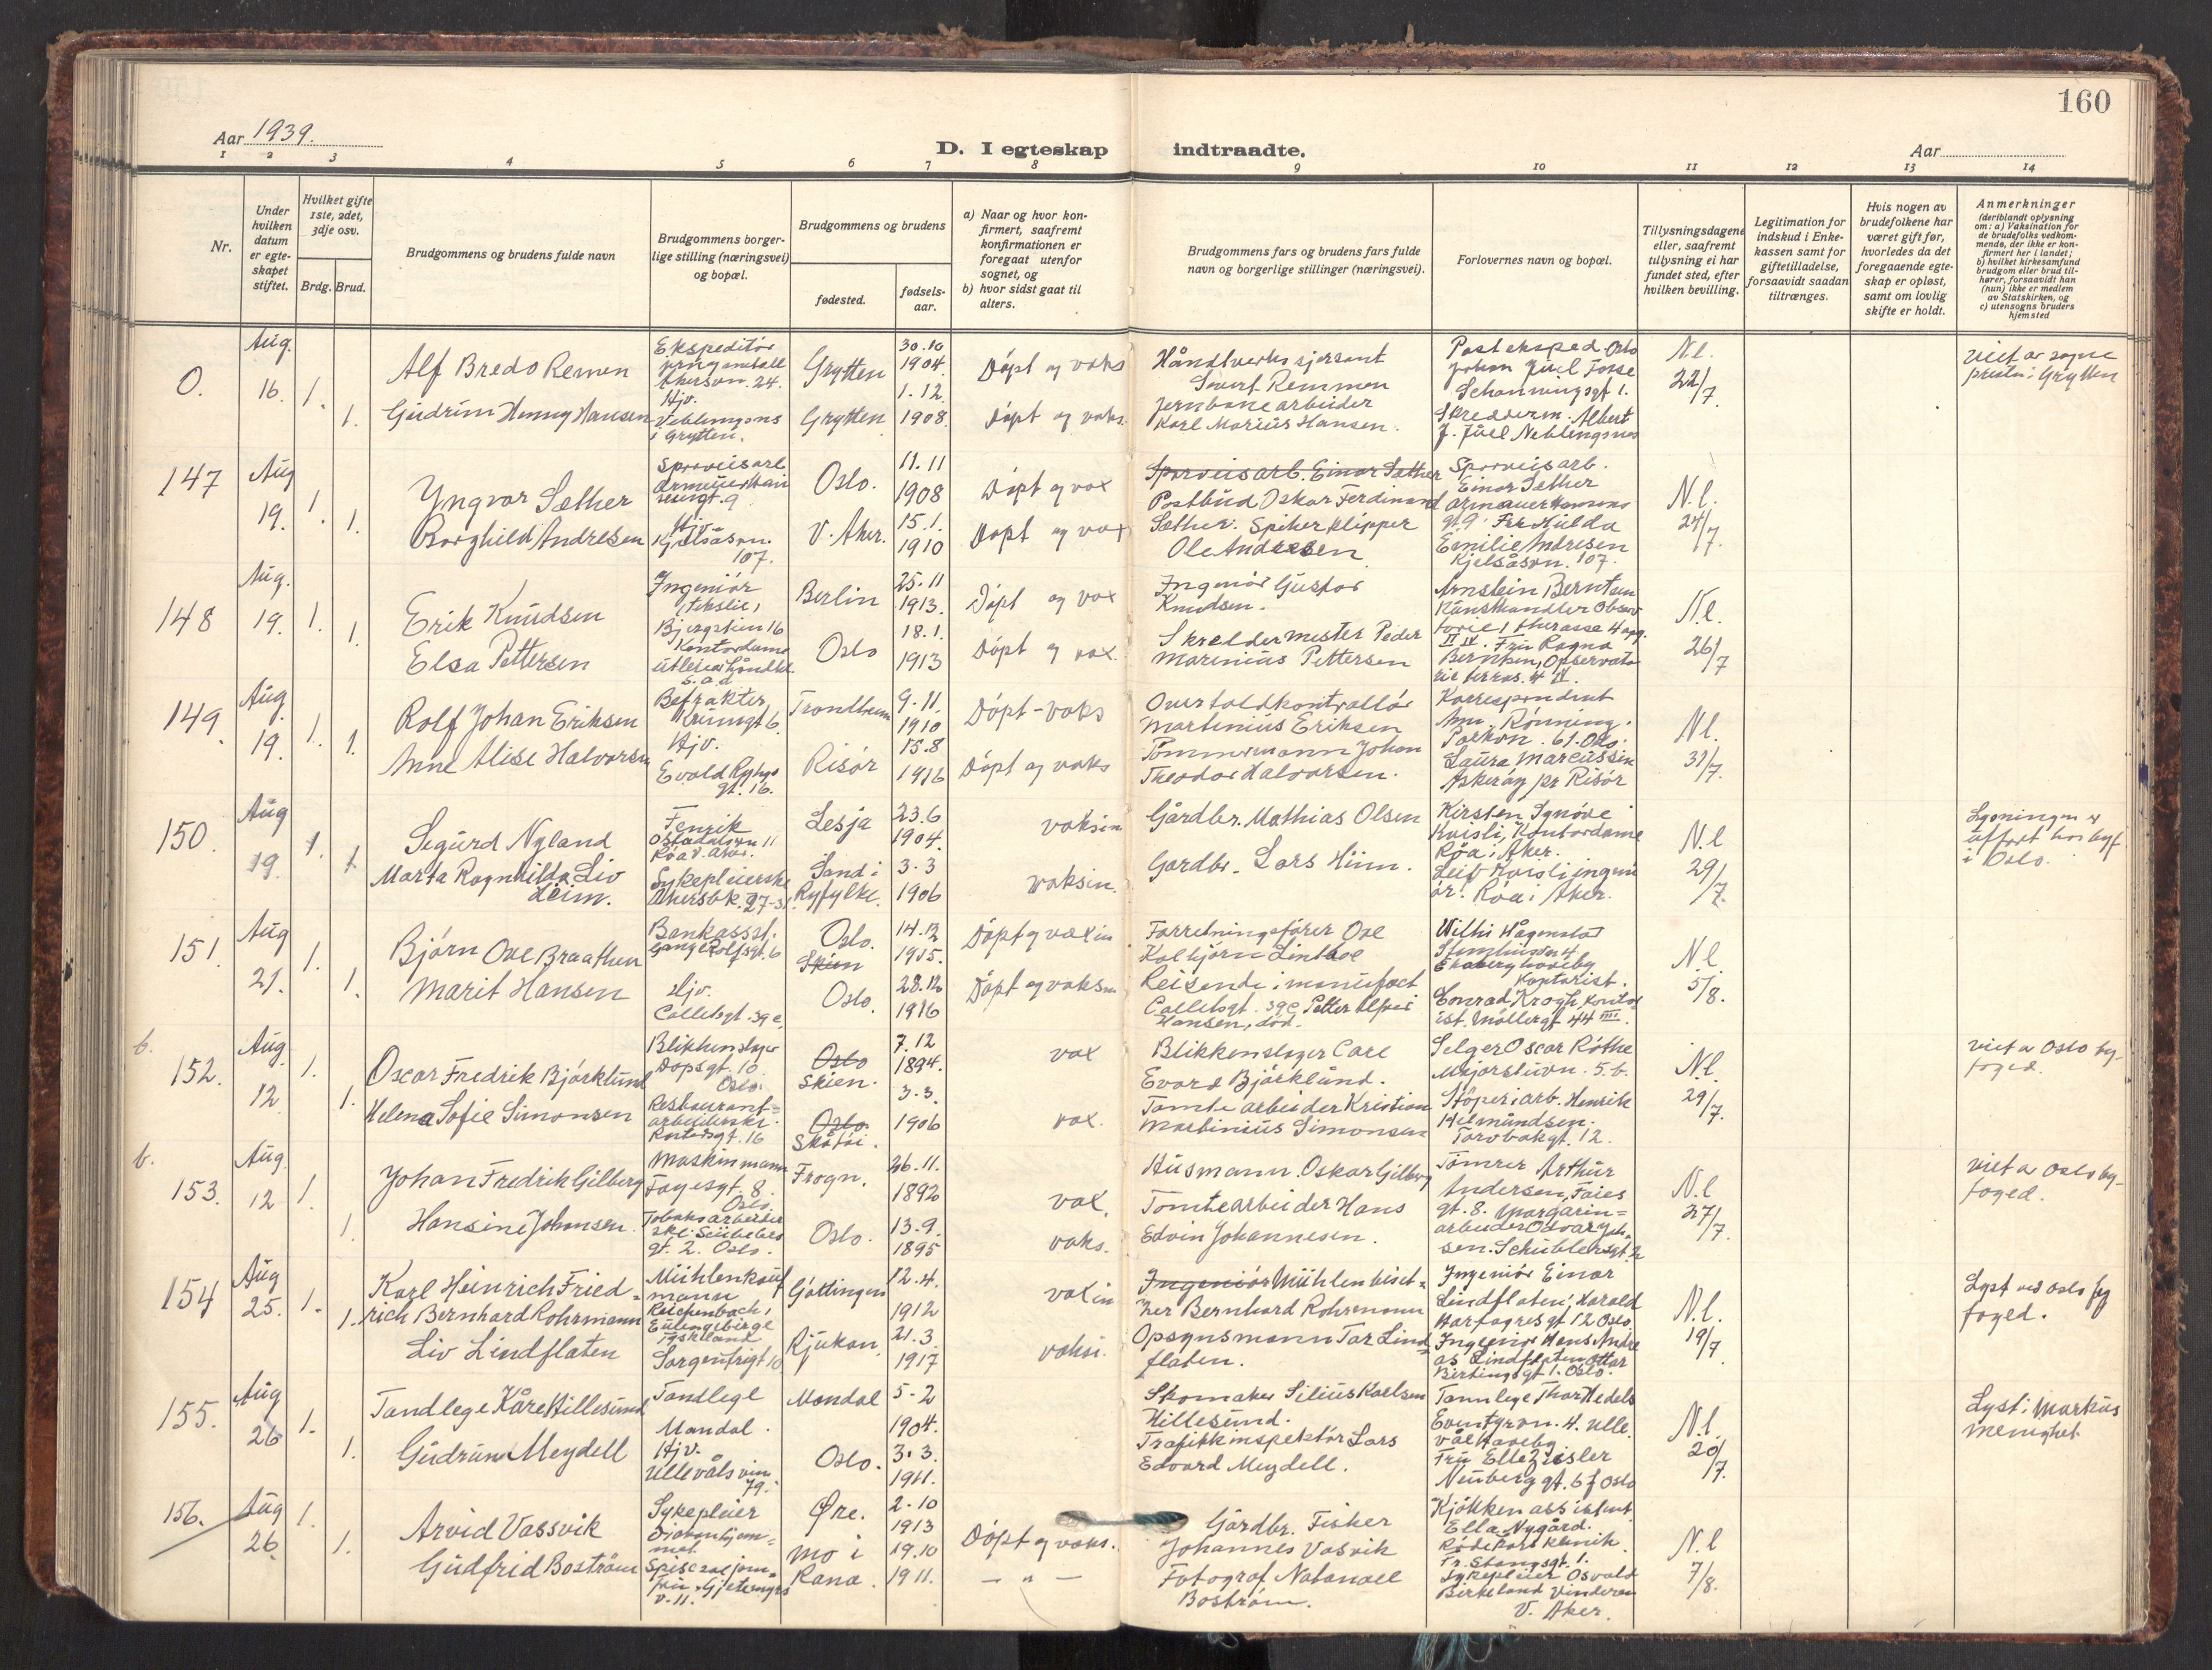 160
Aar 1939.
D. I egteskap indtraadte.
Aar
1 2 3 4 5 6 7 8 9 10 11 12 13 14
Nr.
Under hvilken datum er egteskapet stiftet.
Hvilket gifte 1ste, 2det, 3dje osv.
Brdg. Brud.
Brudgommens og brudens fulde navn
Brudgommens borgerlige stilling (næringsvei) og bopæl.
Brudgommens og brudens
fødested.
fødselsaar.
a) Naar og hvor konfirmert, saafremt konfirmationen er foregaat utenfor sognet, og
b) hvor sidst gaat til alters.
Brudgommens fars og brudens fars fulde navn og borgerlige stillinger (næringsvei).
Forlovernes navn og bopæl.
Tillysningsdagene eller, saafremt tillysning ei har fundet sted, efter hvilken bevilling.
Legitimation for indskud i Enkekassen samt for giftetilladelse, forsaavidt saadan tiltrænges.
Hvis nogen av brudefolkene har været gift før, hvorledes da det foregaaende egteskap er opløst, samt om lovlig skifte er holdt.
Anmerkninger
(deriblandt oplysning om: a) Vaksination for de brudefolks vedkommende, der ikke er konfirmert her i landet; b) hvilket kirkesamfund brudgom eller brud tilhører, forsaavidt han (hun) ikke er medlem av Statskirken, og c) utensogns bruders hjemsted
0. Aug. 16. 1. 1.
Alf Bredo Remen
Ekspeditør
Akersvn. 24.
Grytten
30.10 1904.
Døpt og vaks
Håndtverkssjersant
Sivert Remmen
Posteksped. Oslo
Johan Juel Fosse
Schanningsgt 1.
N.l. 22/7
viet av sogne
prest i Grytten
Gudrun Henny Hansen
Hjv.
i Grytten.
Grytten
1.12. 1908.
Døpt og vaks.
Jernbanearbeider
Karl Marius Hansen.
Skredderm. Albert
J. Juel Neblingsnes
147 Aug 19. 1. 1.
Yngvar Sæther
Sporveisarb
Oslo.
11.11 1908
Døpt og vax
Sporveisarb. Einar Sæther
Postbud Oskar Ferdinand
Sæther.
Sporveisarb.
Einar Sæther
Armauer Hansens
gt. 9. Fru Hulda
Emilie Andresen
Kjelsåsvn. 107.
N.l. 24/7
Borghild Andresen
Hjv.
Kjelsåsvn.
107.
V. Aker.
15.1. 1910
Døpt og vax
Spikerklipper
Ole Andresen
148 Aug. 19. 1. 1.
Erik Knudsen
Ingeniør
Berlin
25.11 1913.
Døpt og vax
Ingeniør Gustav
Knudsen.
Arnstein Berntsen
Kunsthandler
N.l. 26/7
Elsa Pettersen
Kontordame
s.a.d
Oslo
18.1. 1913
Døpt og vax.
Skreddermester Peder
Marinius Pettersen
Fru Ragna
Berntsen, Observato
149. Aug. 19. 1. 1.
Rolf Johan Eriksen
Befrakter,
Trondheim
9.11. 1910
Døpt - vaks
Overtoldkontrollør
Martinius Eriksen
Korrespondent
Rønning.
Parkvn. 61. Oslo.
N.l. 31/7.
Anne Alise Halvorsen
Hjv.
Evald Ryghs
gt. 16.
Risør
15.8 1916
Døpt og vaks
Tømmermann Johan
Theodor Halvorsen.
Laura Marcussen
Askerøy pr Risør
150. Aug 19. 1. 1.
Sigurd Nyland
Fenrik
Røa V. Aker.
Lesja
23.6 1904.
vaksin
Gårdbr. Mathias Olsen
Kirsten Synøve
Kvisli, Kontordame
Røa i Aker.
N.l 29/7.
Lysningen er
utført hos byf
i Oslo.
Marta Ragnhilda Liv
Heim.
Sykepleierske
Akersbk. 27-31
Sand i
Ryfylke.
3.3 1906
vaksin.
Gardbr. Lars Hiim.
Leif Kvisli ingeni
ør. Røa i Aker.
151. Aug 21. 1. 1.
Bjørn Ove Braathen
Bankasst.
Gange Rolfsgt. 6
Oslo.
Skien
14.12 1915.
Døpt og vaxin
Forretningsfører Ove
Kolbjørn
Kontorist.
N.l. 5/8.
Marit Hansen
Hjv.
Colletsgt. 39 c,
Oslo.
28.12 1916
Døpt og vaksin
Reisende i manufact
Colletsgt. 39c Petter Alfred
Hansen, død.
Conrad Krogh, kontor
ist. Møllergt 44 III.
b. 152. Aug. 12 1. 1.
Oscar Fredrik Bjørklund
Blikkenslager
Dopsgt. 10
Oslo.
Oslo
Skien.
7.12 1894.
vax
Blikkenslager Carl
Evard Bjørklund.
Selger Oscar Røthe
Majorstuvn. 5.b.
N.l. 29/7.
viet av Oslo by-
foged.
Helena Sofie Simonsen
Restaurant-
arbeiderske.
Oslo.
Skåtøi.
3.3. 1906
vax.
Tomtearbeider Kristian
Martinius Simonsen
Støperiarb. Henrik
Helmundsen.
Torvbakgt. 12.
b. 153. Aug. 12 1. 1.
Johan Fredrik Gilberg
Maskinmann
Fayesgt. 8.
Oslo.
Frogn.
26.11. 1892
vax.
Husmann Oskar Gilberg
Tømrer Arthur
Andersen, Faies
gt. 8.
N.l 27/7.
viet av Oslo by-
foged.
Hansine Johansen.
Tobaksarbeider
ske. Schübelers
gt. 2. Oslo.
Oslo.
13.9. 1895
vaks.
Tomtearbeider Hans
Edvin Johannesen.
Margarin-
arbeider Odvar Joh.
sen. Schüblersgt. 2
154 Aug 25. 1. 1.
Karl Heinrich Fried-
rich Bernhard Rohrmann
Mühlenkauf
mann
Reichenbach,
Eulengebirge
Tyskland
Göttingen
12.4. 1912
vaxin
Ingeniør Mühlenbesit-
zer Bernhard Rohrmann
Ingeniør Einar
Lindflaten, Harald
Harfagresgt 12 Oslo.
N.l. 19/7.
Lyst ved Oslo by
foged.
Liv Lindflaten
Sorgenfrigt 10
Rjukan.
21.3. 1917
vaksi.
Opsynsmann Tor Lind-
flaten.
Ingeniør Hans Andre
as Lindflaten
155. Aug 26 1. 1.
Tandlege Kåre Hillesund
Tandlege
Mandal.
Mandal
5-2 1904.
Skomaker Silius Karlsen
Hillesund.
Tannlege Thor Hedels
Eventyrvn. 4. Ulle
vål Haveby
N.l. 20/7.
Lyst i Markus
menighet
Gudrun Meydell
Hjv.
Ullevålsvn.
79.
Oslo.
3.3. 1911.
Trafikkinspektør Lars
Edvard Meydell.
Fru Elle Zeisler
Neuberggt. 6 f Oslo
156. Aug 26. 1. 1.
Arvid Vassvik
Sykepleier
Diakonhjem-
met
Øre.
2-10 1913
Døpt og vaks.
Gårdbr. Fisker
Johannes Vasvik
Kjøkkenassistent
Ella Nygård.
Røde Kors klinik.
Fr. Stangsgt. 1.
N.l 7/8.
Gudfrid Bostrøm
Spisesaljom-
fru.
v. 11.
Mo i
Rana.
19.10 1911.
— " —
Fotograf Natanael
Bostrøm.
Sykepleier Osvald
Birkeland Vinderen
V. Aker.